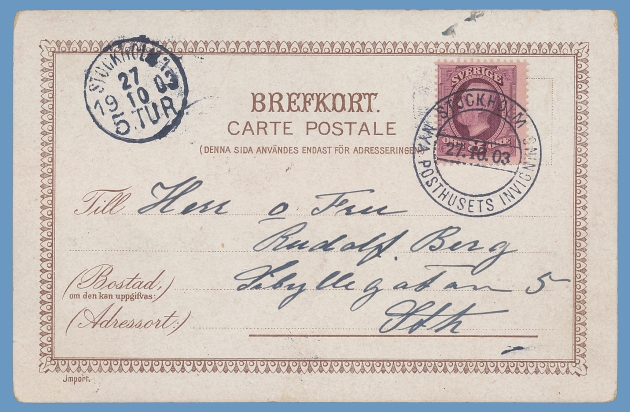 STOCKHOLM
27
19 10 03
5.TUR
SVERIGE
STOCKHOLM NYA POSTHUSETS INVIGNING
27.10.03
BREFKORT.
CARTE POSTALE
(DENNA SIDA ANVÄNDES ENDAST FÖR ADRESSERINGEN
Till Herr o Fru
Rudolf Berg
(Bostad,) Sibyllegatan 5
om den kan uppgifvas:
(Adressort:) Sthlm
Import.